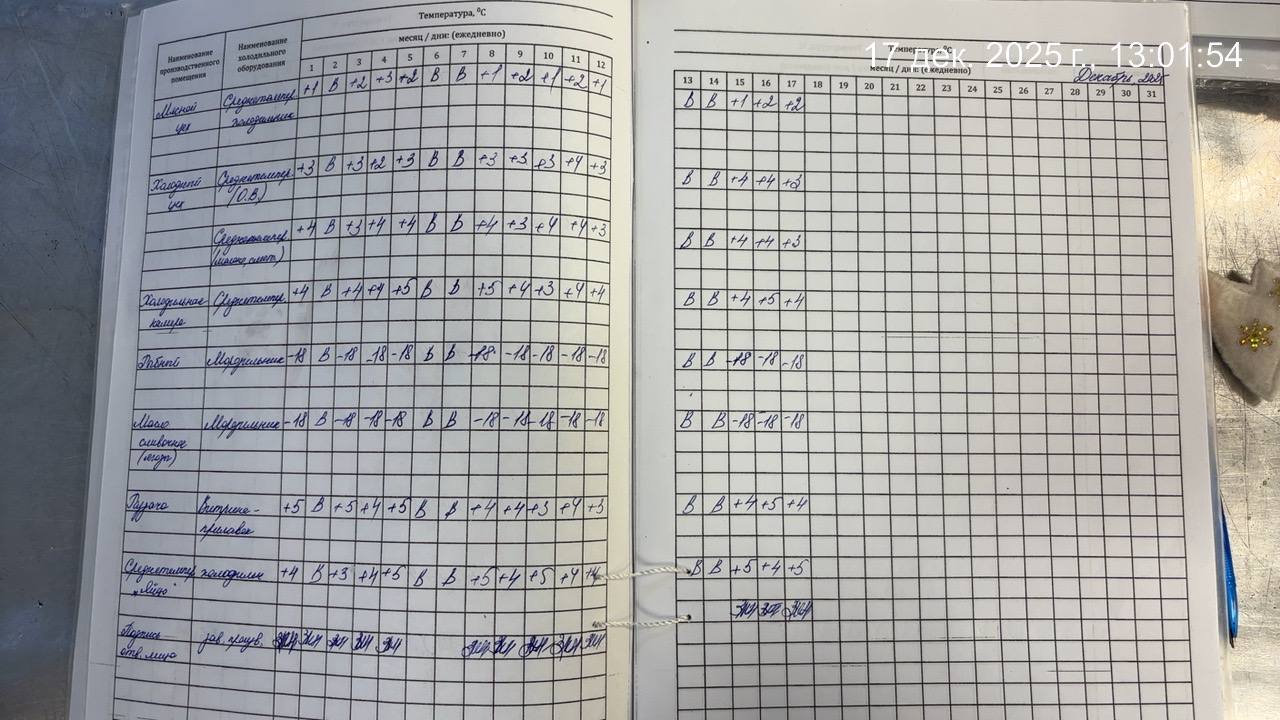 Температура, ⁰С
Наименование производственного помещения
Наименование холодильного оборудования
месяц / дни: (ежедневно)
1 2 3 4 5 6 7 8 9 10 11 12
Мясной цех Среднетемпер. холодильник +1 В +2 +3 +2 В В +1 +2 +1 +2 +1
Холодный цех Среднетемпер. (О.В.) +3 В +3 +2 +3 В В +3 +3 +3 +4 +3
Среднетемпер. +4 В +3 +4 +4 В В +4 +3 +4 +4 +3
Холодильная камера Среднетемпер. +4 В +4 +4 +5 В В +5 +4 +3 +4 +4
Рыбный Морозильник -18 В -18 -18 -18 В В -18 -18 -18 -18 -18
Масло сливочное Морозильник -18 В -18 -18 -18 В В -18 -18 -18 -18 -18
Раздача Витрина-прилавок +5 В +5 +4 +5 В В +4 +4 +3 +4 +3
Среднетемпер. "Яйцо" холодильн +4 В +3 +4 +5 В В +5 +4 +5 +4 +4
Подпись отв. лица зав. произв.
17 дек. 2025 г., 13:01:54
Температура, ⁰С
месяц / дни: (ежедневно)
Декабрь 2025
13 14 15 16 17 18 19 20 21 22 23 24 25 26 27 28 29 30 31
В В +1 +2 +2
В В +4 +4 +3
В В +4 +4 +3
В В +4 +5 +4
В В -18 -18 -18
В В -18 -18 -18
В В +4 +5 +4
В В +5 +4 +5